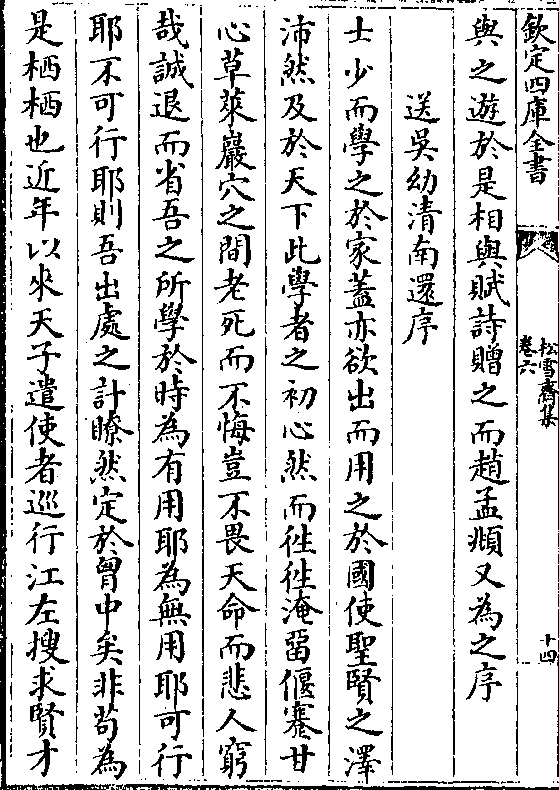 欽定四庫全書
松雪齋集
卷六
十四
與之遊於是相與賦詩贈之而趙孟頫又為之序
送吳幼清南還序
士少而學之於家蓋亦欲出而用之於國使聖賢之澤
沛然及於天下此學者之初心然而徃徃淹留偃蹇甘
心草萊巖穴之間老死而不悔豈不畏天命而悲人窮
哉誠退而省吾之所學於時為有用耶為無用耶可行
耶不可行耶則吾出處之計瞭然定於胷中矣非苟為
是栖栖也近年以來天子遣使者巡行江左搜求賢才